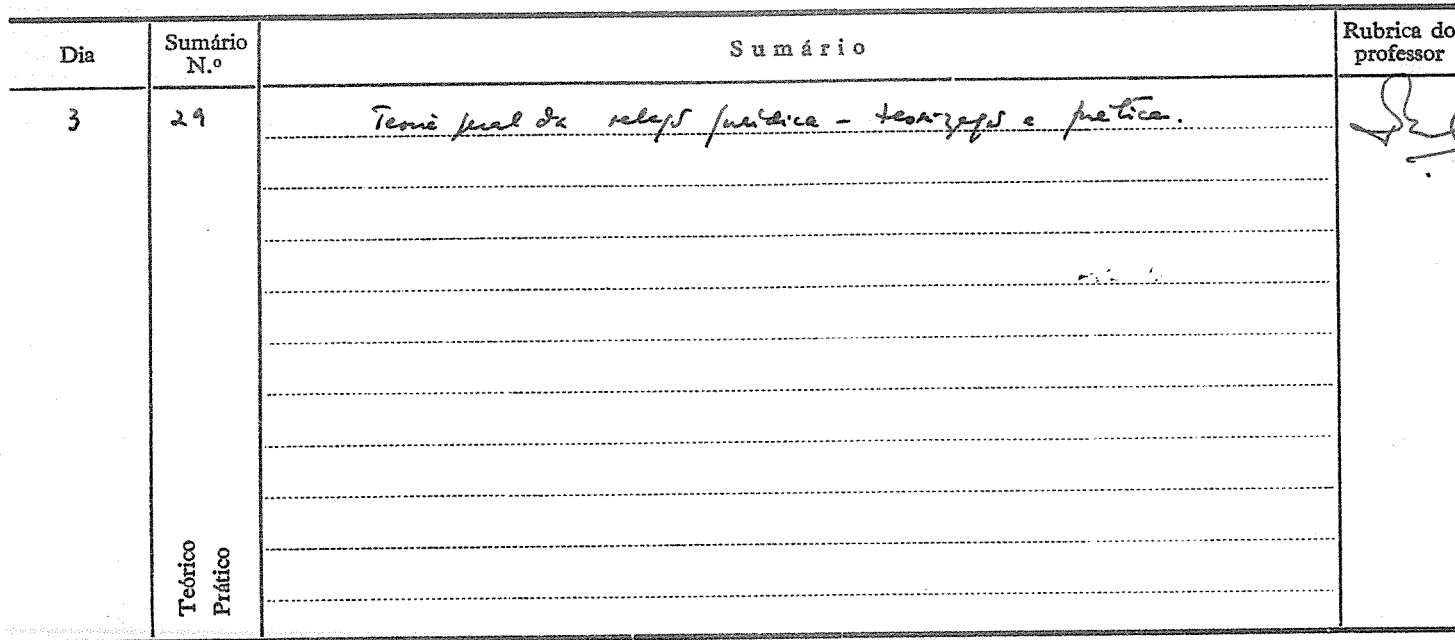 Dia
Sumário N.º
Sumário
Rubrica do professor
3
29
Teoria geral da relação jurídica - teorização e prática.
Teórico
Prático